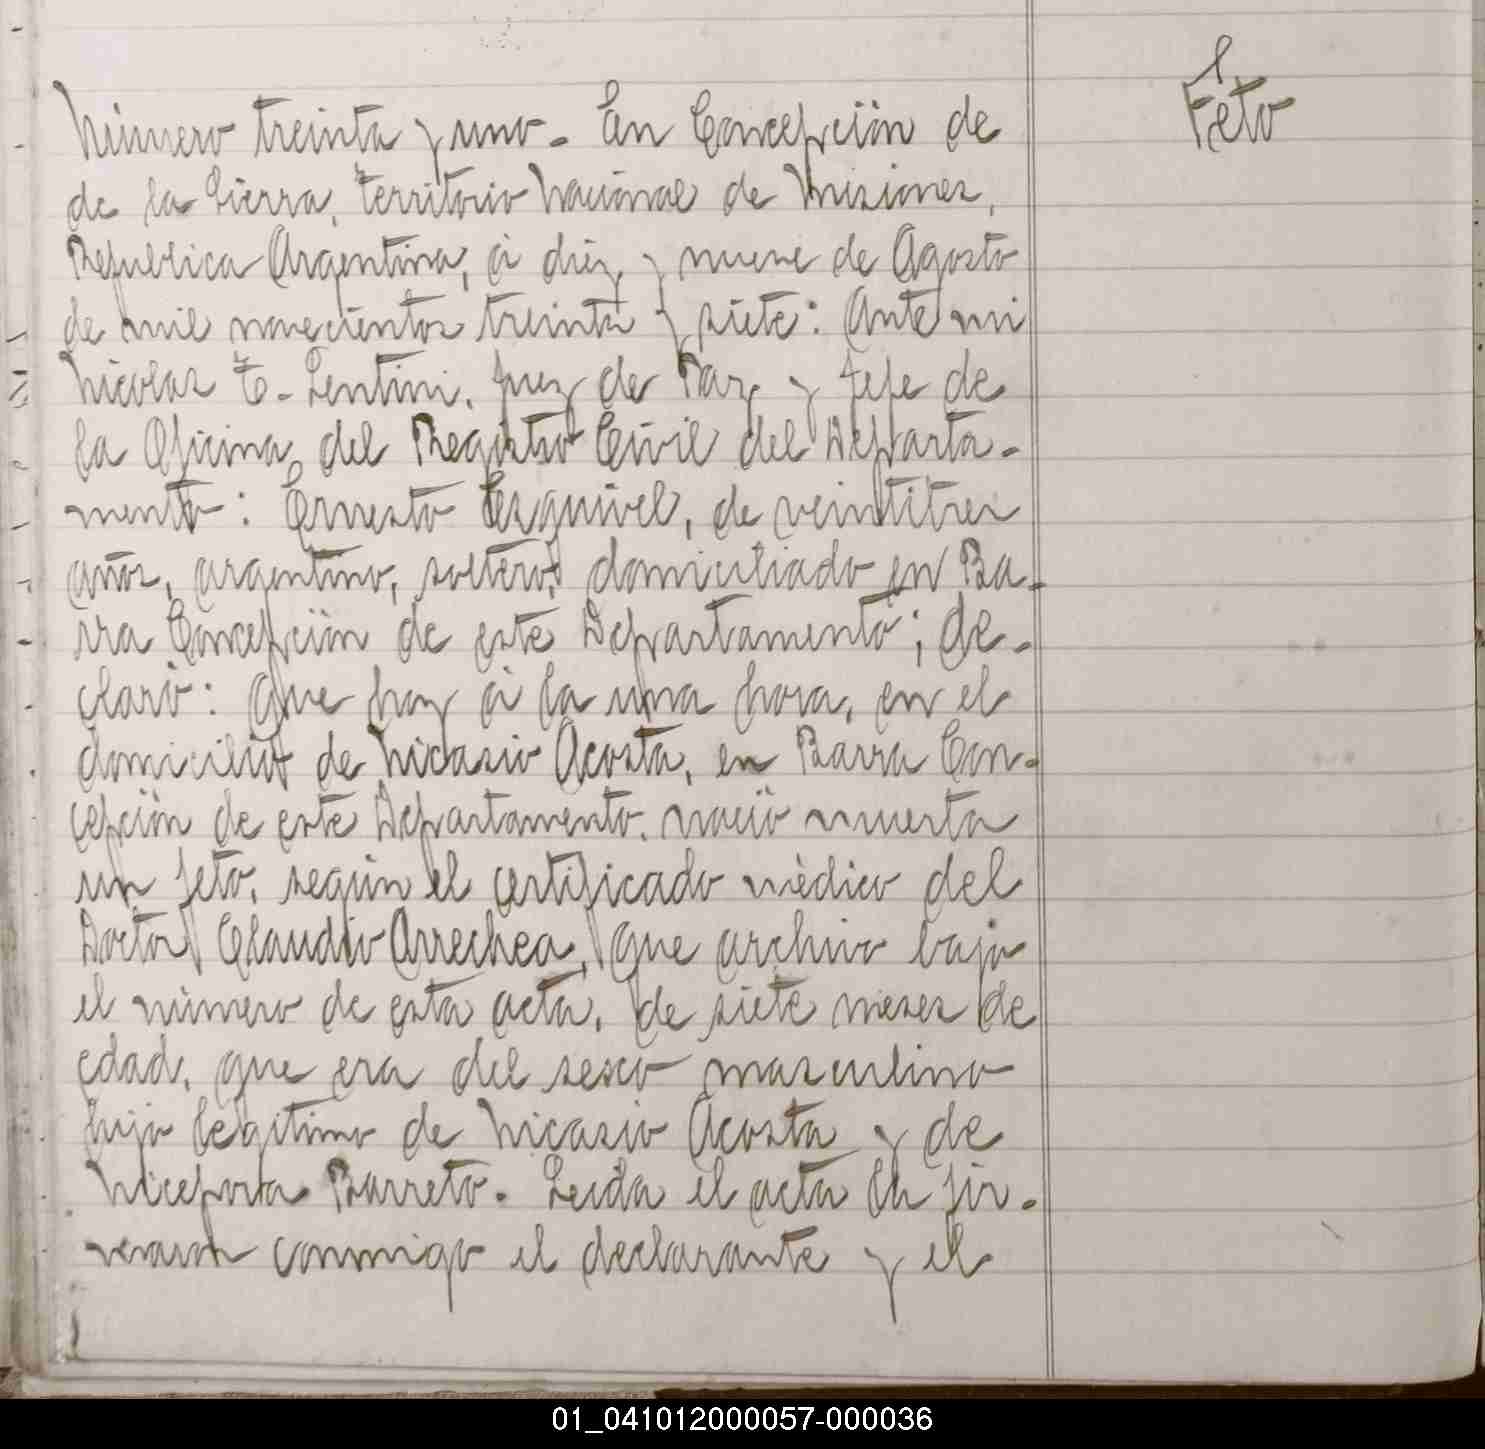 Feto
Número treinta y uno. En Concepción de
de la Sierra, territorio Nacional de Misiones,
Republica Argentina, á diez y nueve de Agosto
de mil novecientos treinta y siete: Ante mi
Nicolas T. Lentini, Juez de Paz y Jefe de
la Oficina del Registro Civil del Departa-
mento: Ernesto Esquivel, de veintitres
años, argentino, soltero, domiciliado en Ba-
rra Concepción de este Departamento; de-
claró: Que hoy á la una hora, en el
domicilio de Nicasio Acosta, en Barra Con-
cepción de este Departamento, nació muerta
un feto, según el certificado médico del
Doctor Claudio Arrechea, que archivo bajo
el número de esta acta, de siete meses de
edad, que era del sexo masculino
hijo legitimo de Nicasio Acosta y de
Nicefora Barreto. Leida el acta la fir-
maron conmigo el declarante y el
01_041012000057-000036